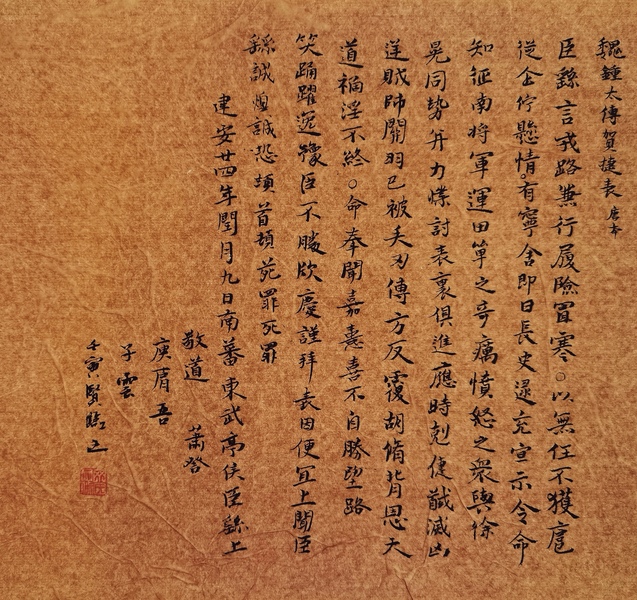 魏鍾太傅賀捷表 唐本
臣繇言戎路兼行履險冒寒。以無任不獲扈
從企佇懸情。有寧舍即日長史逯充宣示令命
知征南將軍運田單之奇厲憤怒之眾與徐
晃同勢并力㩹討表裏俱進應時剋捷馘滅凶
逆賊帥關羽已被矢刃傅方反覆胡脩背恩天
道禍淫不終。命奉聞嘉憙喜不自勝望路
笑踊躍逸豫臣不勝欣慶謹拜表因便宜上聞臣
繇誠惶誠恐頓首頓首死罪死罪
建安廿四年閏月九日南蕃東武亭侯臣繇上
敬道 蕭詧
庾肩吾
子雲
壬寅賢臨之